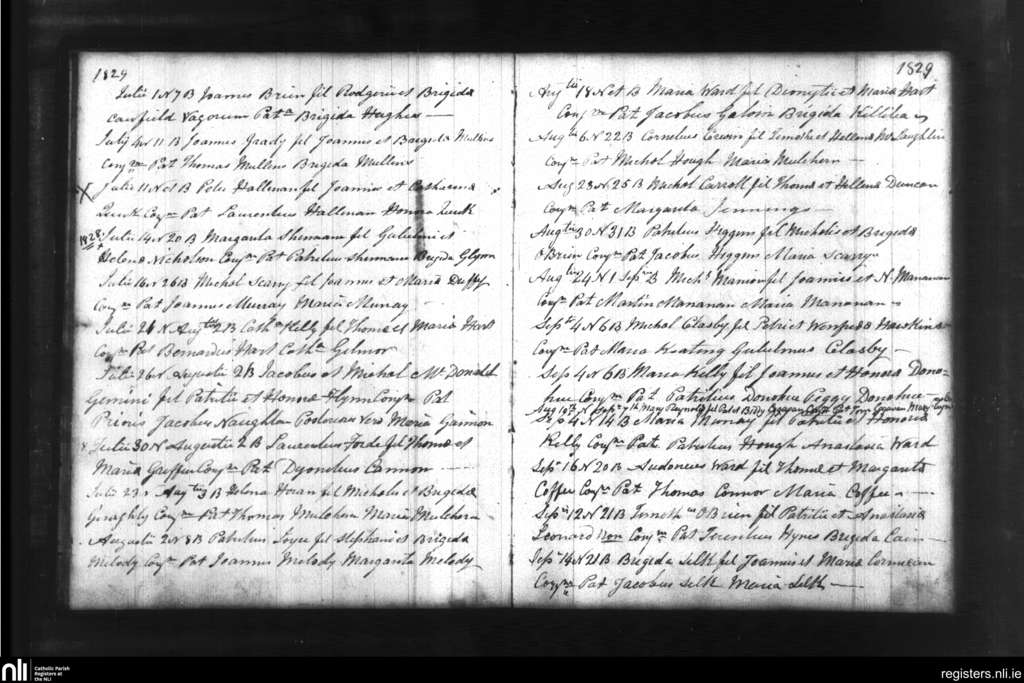 1829
Julii 1 N 7 B Joannes Brien fil Rodgeri et Brigida
Cawfield Vagorum Pata Brigida Hughes
July 4 N 11 B Joannes Grady fil Joannes et Bargeta Mullins
Conjm Pat Thomas Mullens Brigida Mullens
X Julii 11 N et 1 B Peter Hallinan fil Joannis et Catharena
Quirk Conjm Pat Laurentius Hallinan Honora Quirk
1828 Julii 14 N 20 B Margarita Shennan fil Gulielmi et
Helena Nicholson Conjm Pat Patritius Shennan Brigida Glynn
Julii 16 N 26 B Michel Scary fil Joannes et Maria Duffy
Conjm Pat Joannes Murray Maria Murray
Julii 26 N Augti 2 B Cathn Kelly fil Thoma et Maria Hart
Conjm Pat Bernardus Hart Cathn Gilmor
Julii 26 N Augusti 2 B Jacobus et Michal Mc Donald
Gemini fil Patritii et Honora Flynn Conjm Pat
Prioris Jacobus Naughton Posterioris Vero Maria Gannon
Julii 30 N Augustii 2 B Laurentius Forde fil Thoma et
Maria Griffin Conjm Pat Dyonitius Cannon
Julii 23 N Augtii 3 B Helena Horan fil Micholis et Brigida
Geraghty Conjm Pat Thomas Mulchern Maria Mulchern
Augustii 2 N 8 B Patritius Joyce fil Stephani et Brigida
Melody Conjm Pat Joannes Melody Margarita Melody
1829
Augtii 18 N et B Maria Ward fil Dionytii et Maria Hart
Conjm Pat Jacobus Galvin Brigida Killilea
Augtii 6 N 22 B Cornelius Cerwin fil Timothi et Hellena McLaughlin
Conjm Pat Michal Hough Maria Mulchern
Aug 23 N 25 B Michal Carroll fil Thoma et Hellena Duncan
Conjm Pat Margarita Jennings
Augtii 30 N 31 B Patritius Higgins fil Micholis et Brigida
O'Brien Conjm Pat Jacobus Higgins Maria Scarry
Augtii 24 N 1 Septr B Michl Mannion fil Joannis et N. Manannan
Conjm Pat Martin Manannan Maria Manannan
Septr 4 N 6 B Michal Glasby fil Petri et Wenifreda Hawkins
Conjm Pat Maria Keating Gulielmus Glasby
Sep 4 N 6 B Maria Kelly fil Joannes et Honora Dono-
hue Conjm Pat Patritius Donohue Peggy Donohue
Sep 4 N 14 B Maria Murray fil Patritii et Honoria
Kelly Conjm Pat Patritius Hough Anastasia Ward
Sepr 16 N 20 B Audoneus Ward fil Thoma et Margarita
Coffee Conjm Pat Thomas Connor Maria Coffee
Sepr 12 N 21 B Timoths O'Brien fil Patritii et Anastasia
Leonard Conjm Pat Terentius Hynes Brigida Cain
Sepr 14 N 21 B Brigida Silk fil Joannis et Maria Cormican
Conjm Pat Jacobus Silk Maria Silk
nli Catholic Parish
Registers at
the NLI
registers.nli.ie